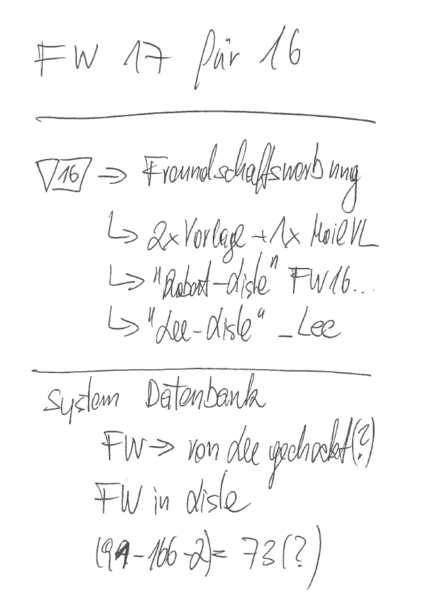 FW 17 für 16
16 ⇒ Freundschaftswerbung
↳ 2x Vorlage + 1x MailVL
↳ "Robert-Liste" FW16...
↳ "Lee-Liste" _Lee
System Datenbank
FW ⇒ von Lee gecheckt(?)
FW in Liste
-166-2)= 73(?)